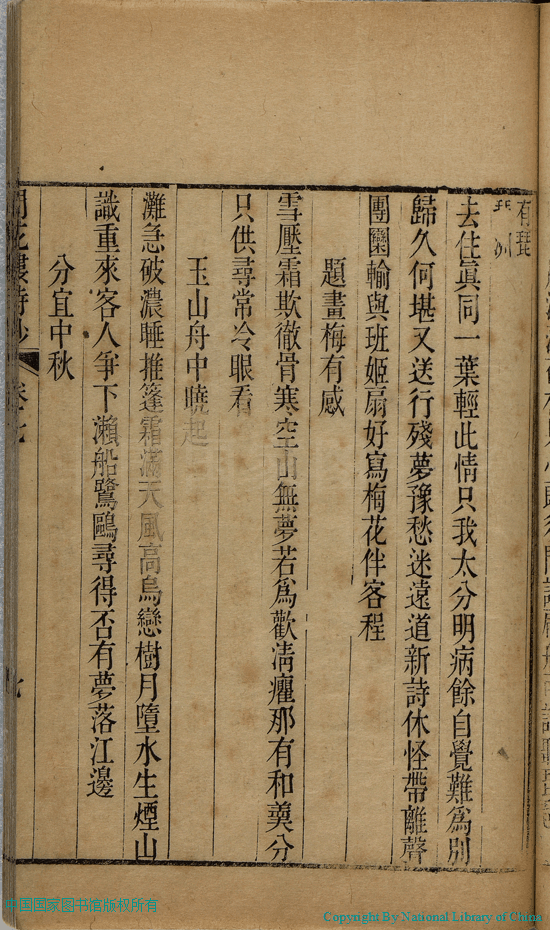 有琵
去住眞同一葉輕此情只我太分明病餘自覺難爲別
歸久何堪又送行殘夢豫愁迷遠道新詩休怪帶離聲
團圞輸與班姬扇好寫梅花伴客程
題畫梅有感
雪壓霜欺徹骨寒空山無夢若爲歡淸癯那有和羹分
只供尋常冷眼看
玉山舟中曉起
灘急破濃睡推篷霜滿天風高烏戀樹月墮水生煙山
識重來客人爭下瀨船鷺鷗尋得否有夢落江邊
分宜中秋
卷七
七
中国国家图书馆版权所有
Copyright By National Library of China